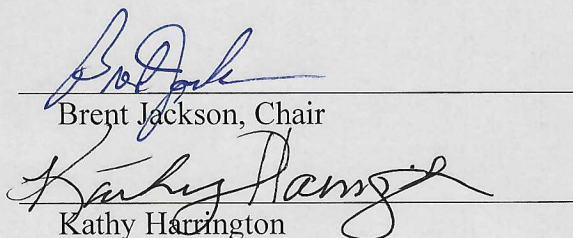 Brent Jackson
Brent Jackson, Chair
Kathy Harrington
Kathy Harrington